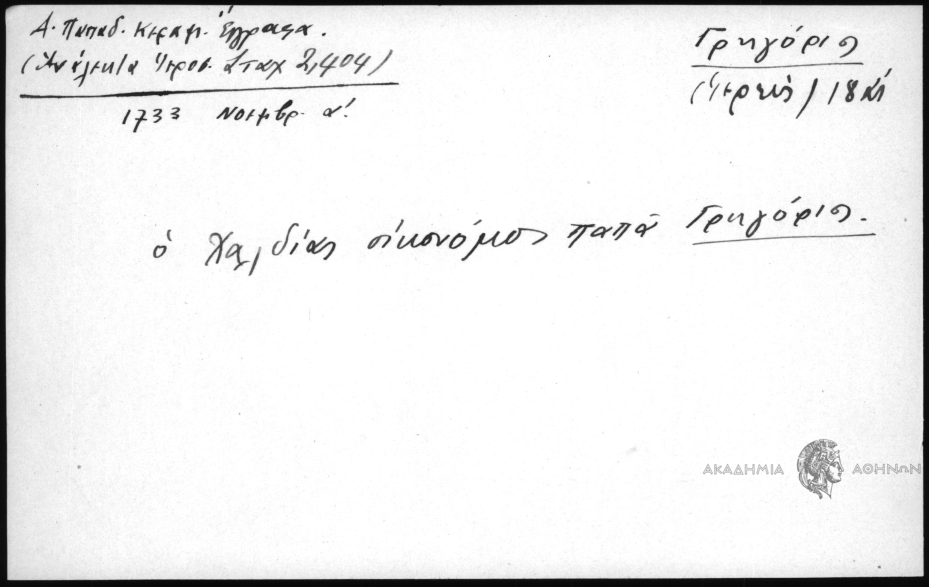 Α. Παπαδ. Κεραμ. Έγγραφα.
(Ἀνάλεκτα Ἱεροσ. Σταχ 2,404)
1733 Νοεμβρ. α!
Γρηγόριος
(Ἱερεὺς) 18 αἰ
ὁ Χαλδίας οἰκονόμος παπᾶ Γρηγόριος.
ΑΚΑΔΗΜΙΑ ΑΘΗΝΩΝ